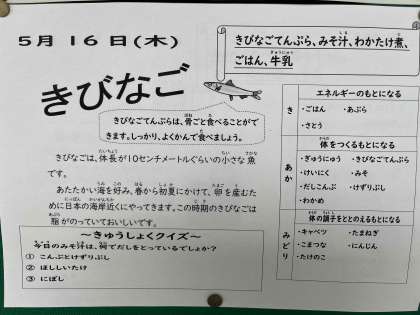 5月16日(木)
きびなご
きびなごてんぷらは、骨ごと食べることがで
きます。しっかり、よくかんで食べましょう。
きびなごは、体長が10センチメートルぐらいの小さな魚
です。
あたたかい海を好み、春から初夏にかけて、卵を産むた
めに日本の海岸近くにやってきます。この時期のきびなごは
脂がのっていておいしいです。
～きゅうしょくクイズ～
今日のみそ汁は、何でだしをとっているでしょか?
① こんぶとけずりぶし
② ほししいたけ
③ にぼし
きびなごてんぷら、みそ汁、わかたけ煮、
ごはん、牛乳
き
エネルギーのもとになる
・ごはん ・あぶら
・さとう
あか
体をつくるもとになる
・ぎゅうにゅう ・きびなごてんぷら
・けいにく ・みそ
・だしこんぶ ・けずりぶし
・わかめ
みどり
体の調子をととのえるもとになる
・キャベツ ・たまねぎ
・こまつな ・にんじん
・たけのこ